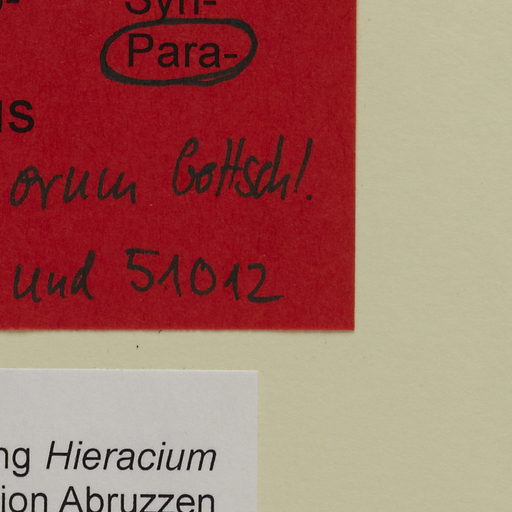 Syn-
Para-
us
orum Gottschl.
und 51012
ng Hieracium
ion Abruzzen